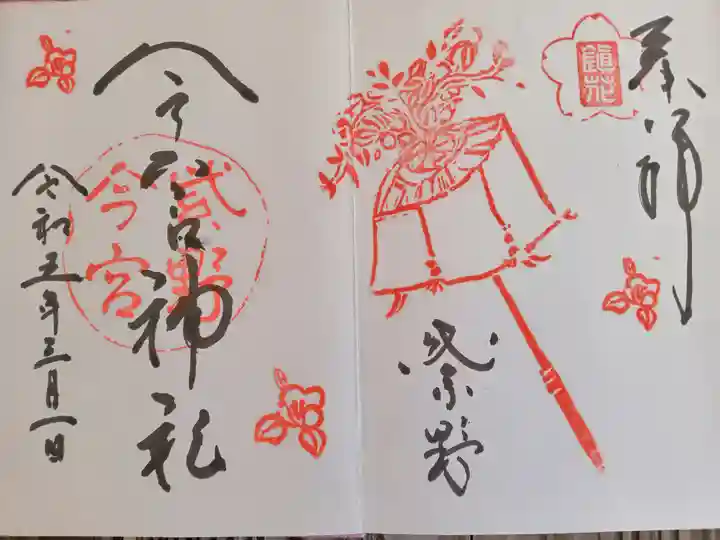 奉拝
鎮花
紫野
今宮神社
紫野
今宮
令和五年三月一日